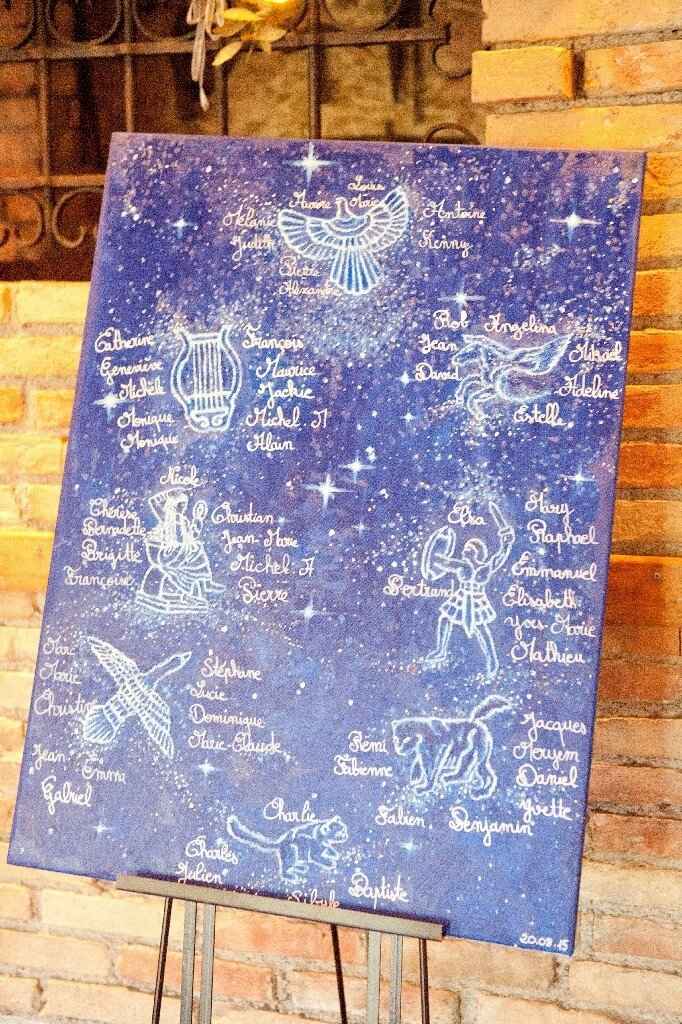 Louis
Aurore Marie
Mélanie Antoine
Judith Kenny
Pierre
Alexandre
Catherine François
Geneviève Maurice
Michèle Jackie
Monique Michel
Monique Alain
Rob Angelina
Jean Mikaël
David Adeline
Estelle
Nicole
Thérèse Christian
Bernadette Jean-Marie
Brigitte Michel
Françoise Pierre
Elsa Mary
Raphael
Bertrand Emmanuel
Elisabeth
Yves-Marie
Mathieu
Marc Stéphane
Marie Lucie
Christine Dominique
Marie-Claude
Jean Emma
Gabriel
Jacques
Rémi
Fabienne Daniel
Yvette
Fabien Benjamin
Charlie
Charles
Julien Baptiste
20.08.15